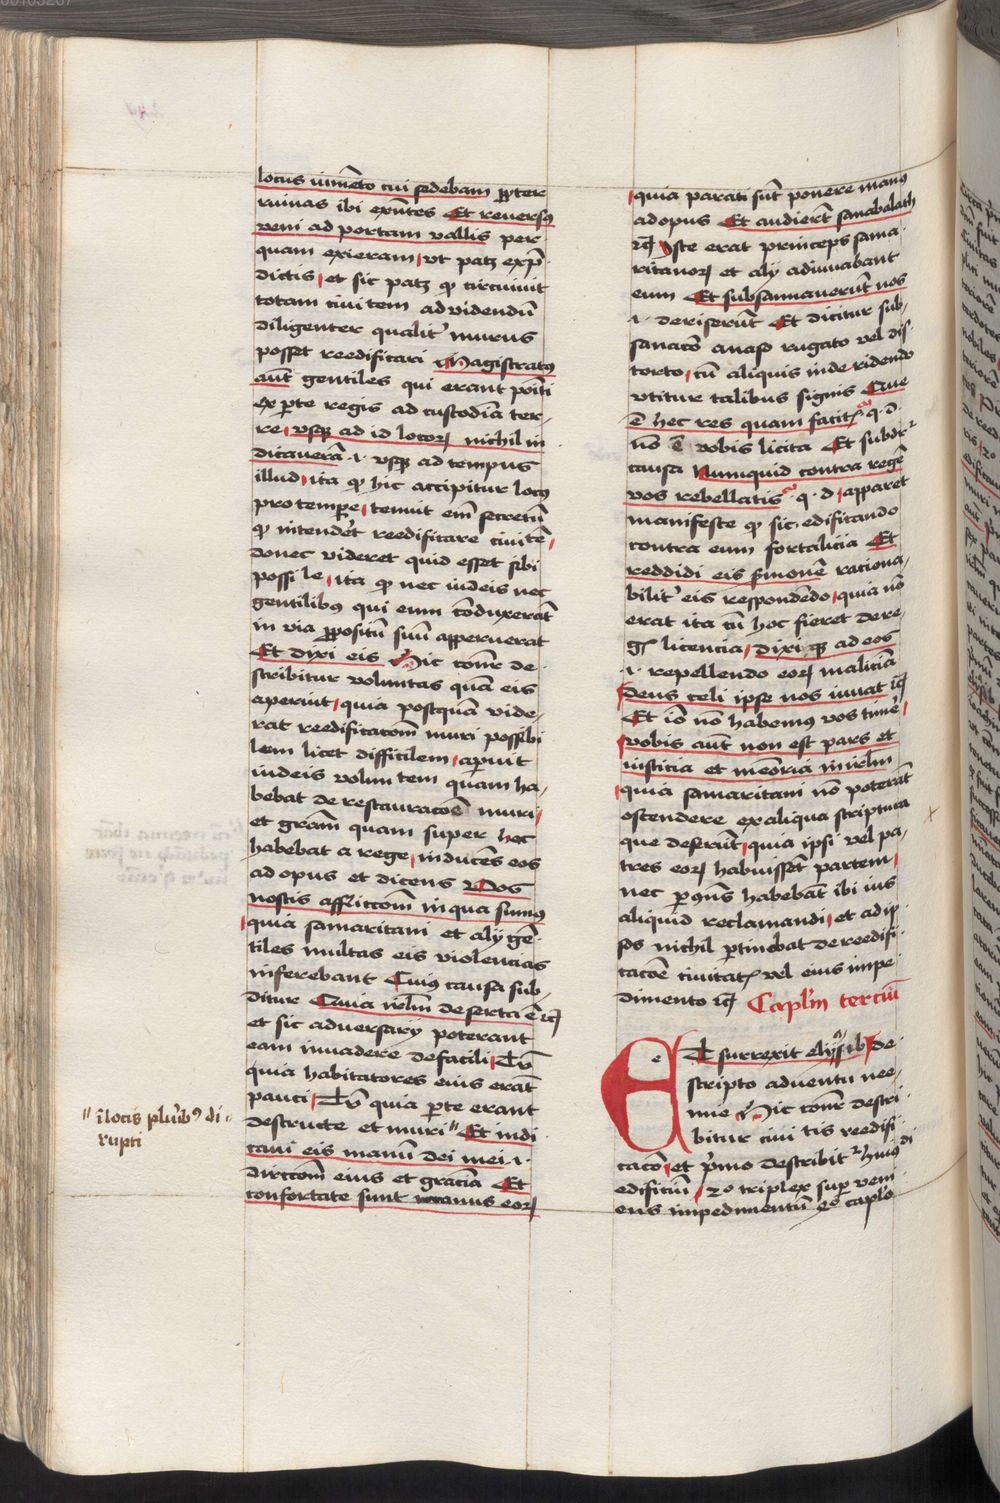 locus iume͂to cui sedebam ꝓpter
ruinas ibi exñtes Et reversꝰ
veni ad portam vallis per
quam exieram vt patꝫ ex p͂
dictis et sic patꝫ ꝙ circuiuit
totam ciuitem ad videndū
diligenter qualit͛ murus
posset reedificari Magistratꝰ
aūt gentiles qui erant poi͂ti
ex ꝑte regis ad custodiā ter-
re vsqꝫ ad id locoꝝ nichil in
dicaverā ·i· vsqꝫ ad tempus
illud ita ꝙ hic accipitur locꝰ
pro tempe tenuit em̄ secretū
ꝙ intende͛t reedificare ciuite͂
donec videret quid esset sibi
possi le ita ꝙ nec iudeis nec
gentilibꝰ qui eum cōduxerāt
in via ꝓpositū suū apperuerat
Et dixi eis Hic cōnr de-
scribitur voluntas quā eis
aperuit quia postquā vide-
rat reedificatom̄ muri possibi
lem licet difficilem aperuit
iudeis volun tem quam ha-
bebat de restauracoē muri
et gram̄ quam super hoc
habebat a rege inducēs eos
ad opus et dicens Vos
nostis afflictom̄ in qua sumꝰ
quia samaritani et alij gē-
tiles multas eis violencias
inferebant Cuiꝰ causa sub-
ditur Quia irlm̄ deserta ē rc̄
et sic adversarij poterant
eam invadere de facili Tū
quia habitatores eius erāt
pauci Tū quia ꝑte erant
destructe et muri " Et indi
" ī locis plur̄ibꝰ di-
rupti
caui eis manū dei mei ·i·
dirccom̄ eius et graciā Et
confortate sunt manus eoꝝ
quia parati sūt ponere manꝰ
ad opus Et audiert̄ sanabalath
rc̄ Iste erat princeps sama-
ritanoꝝ et alij adiuuabant
eum Et subsannauerūt nos
·i· deriserūt Et dicitur sub-
sanaco͂ a naso rugato vel dis
torto cū aliquis inde ridendo
vtitur talibus signis Que
ē hec res quam facitꝭ q·d·
nō ē vobis licita Et subdr͛
causa Numquid contra regē
vos rebellatis q·d· apparet
manifeste ꝙ sic edificando
contra eum fortalicia Et
reddidi eis s͛monē raciona-
bilit͛ eis respondēdo quia nō
erat ita cū hoc fieret de re-
gꝭ licencia dixi qꝫ ad eos
·i· repellendo eoꝝ maliciā
Deus celi ipse nos iuuat rc̄
Et iō nō habemꝰ vos time͛
vobis aūt non est pars et
iusticia et memoria in irlm̄
quia samaritani nō poterāt
ostendere ex aliqua scriptura
que deserūt quia ipsi vel pa-
tres eoꝝ habuissēt partem
nec ꝑ ꝯn̄s habebāt ibi ius
aliquid reclamandi et ad ip
sos nichil ꝑtinebat de reedifi-
cacoē ciuitatꝭ vel eius impe-
dimento rc̄ Capl'm terciū
Et surrexit elyasib de
scripto adventu nee-
mie Hic cōnr descri-
bitur ciui tis reedifi-
caco͂ et p͛mo describit͛ hꝰ di
edificiū 2o triplex suꝑ veni
ens impedimentū eo cap͛lo